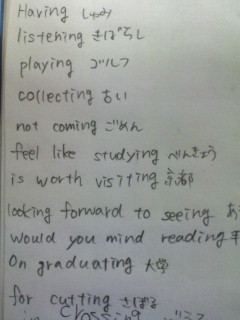 Having しゅみ
listening きばらし
playing ゴルフ
collecting 古い
not coming ごめん
feel like studying べんきょう
is worth visiting 京都
looking forward to seeing あ
would you mind reading
On graduating 大学
for cutting さぼる
crossing